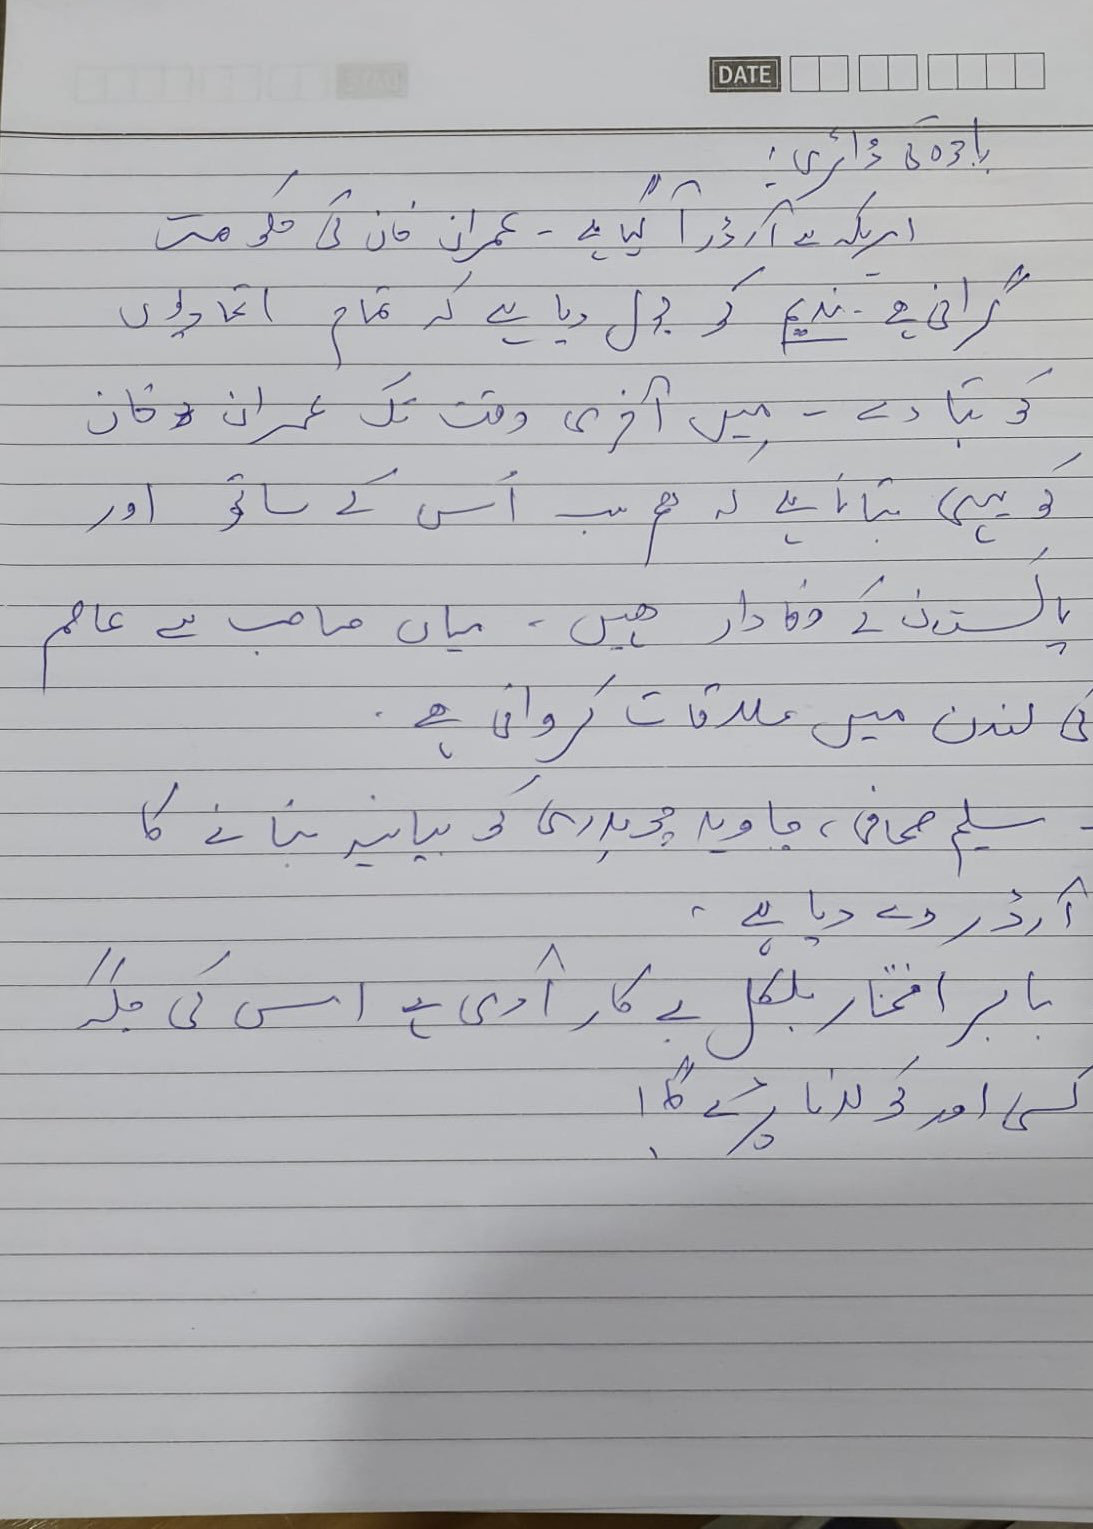 DATE
باجوہ کی ڈائری:
امریکہ سے آرڈر آ گیا ہے - عمران خان کی حکومت
گرانی ہے - ندیم کو بول دیا ہے کہ تمام اتحادیوں
کو بتا دے - میں آخری وقت تک عمران خان
کو یہی بتانا ہے کہ ہم سب اُس کے ساتھ اور
پاکستان کے وفادار ہیں - میاں صاحب سے عاصم
کی لندن میں ملاقات کروانی ہے -
- سلیم صحافی، جاوید چوہدری کو بیانیہ بنانے کا
آرڈر دے دیا ہے -
بابر افتخار بلکل بے کار آدمی ہے اس کی جگہ
کسی اور کو لانا پڑے گا!